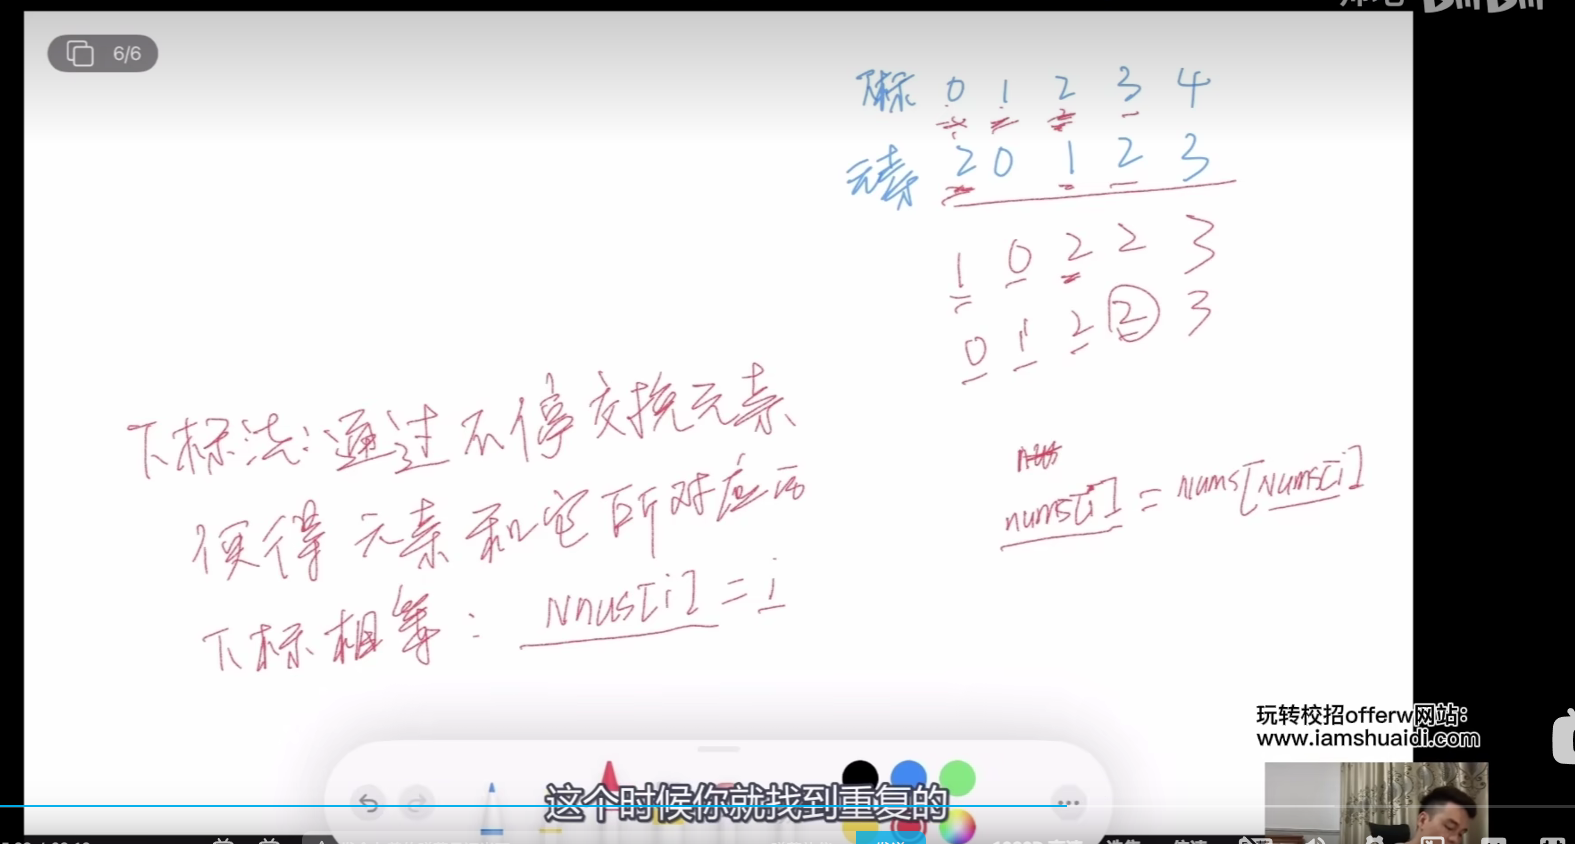 6/6
下标 0 1 2 3 4
元素 2 0 1 2 3
1 0 2 2 3
0 1 2 2 3
下标法:通过不停交换元素
使得元素和它所对应的
下标相等: Nnus[i] = i
nums[i] = nums[nums[i]
玩转校招offerw网站:
www.iamshuaidi.com
这个时候你就找到重复的